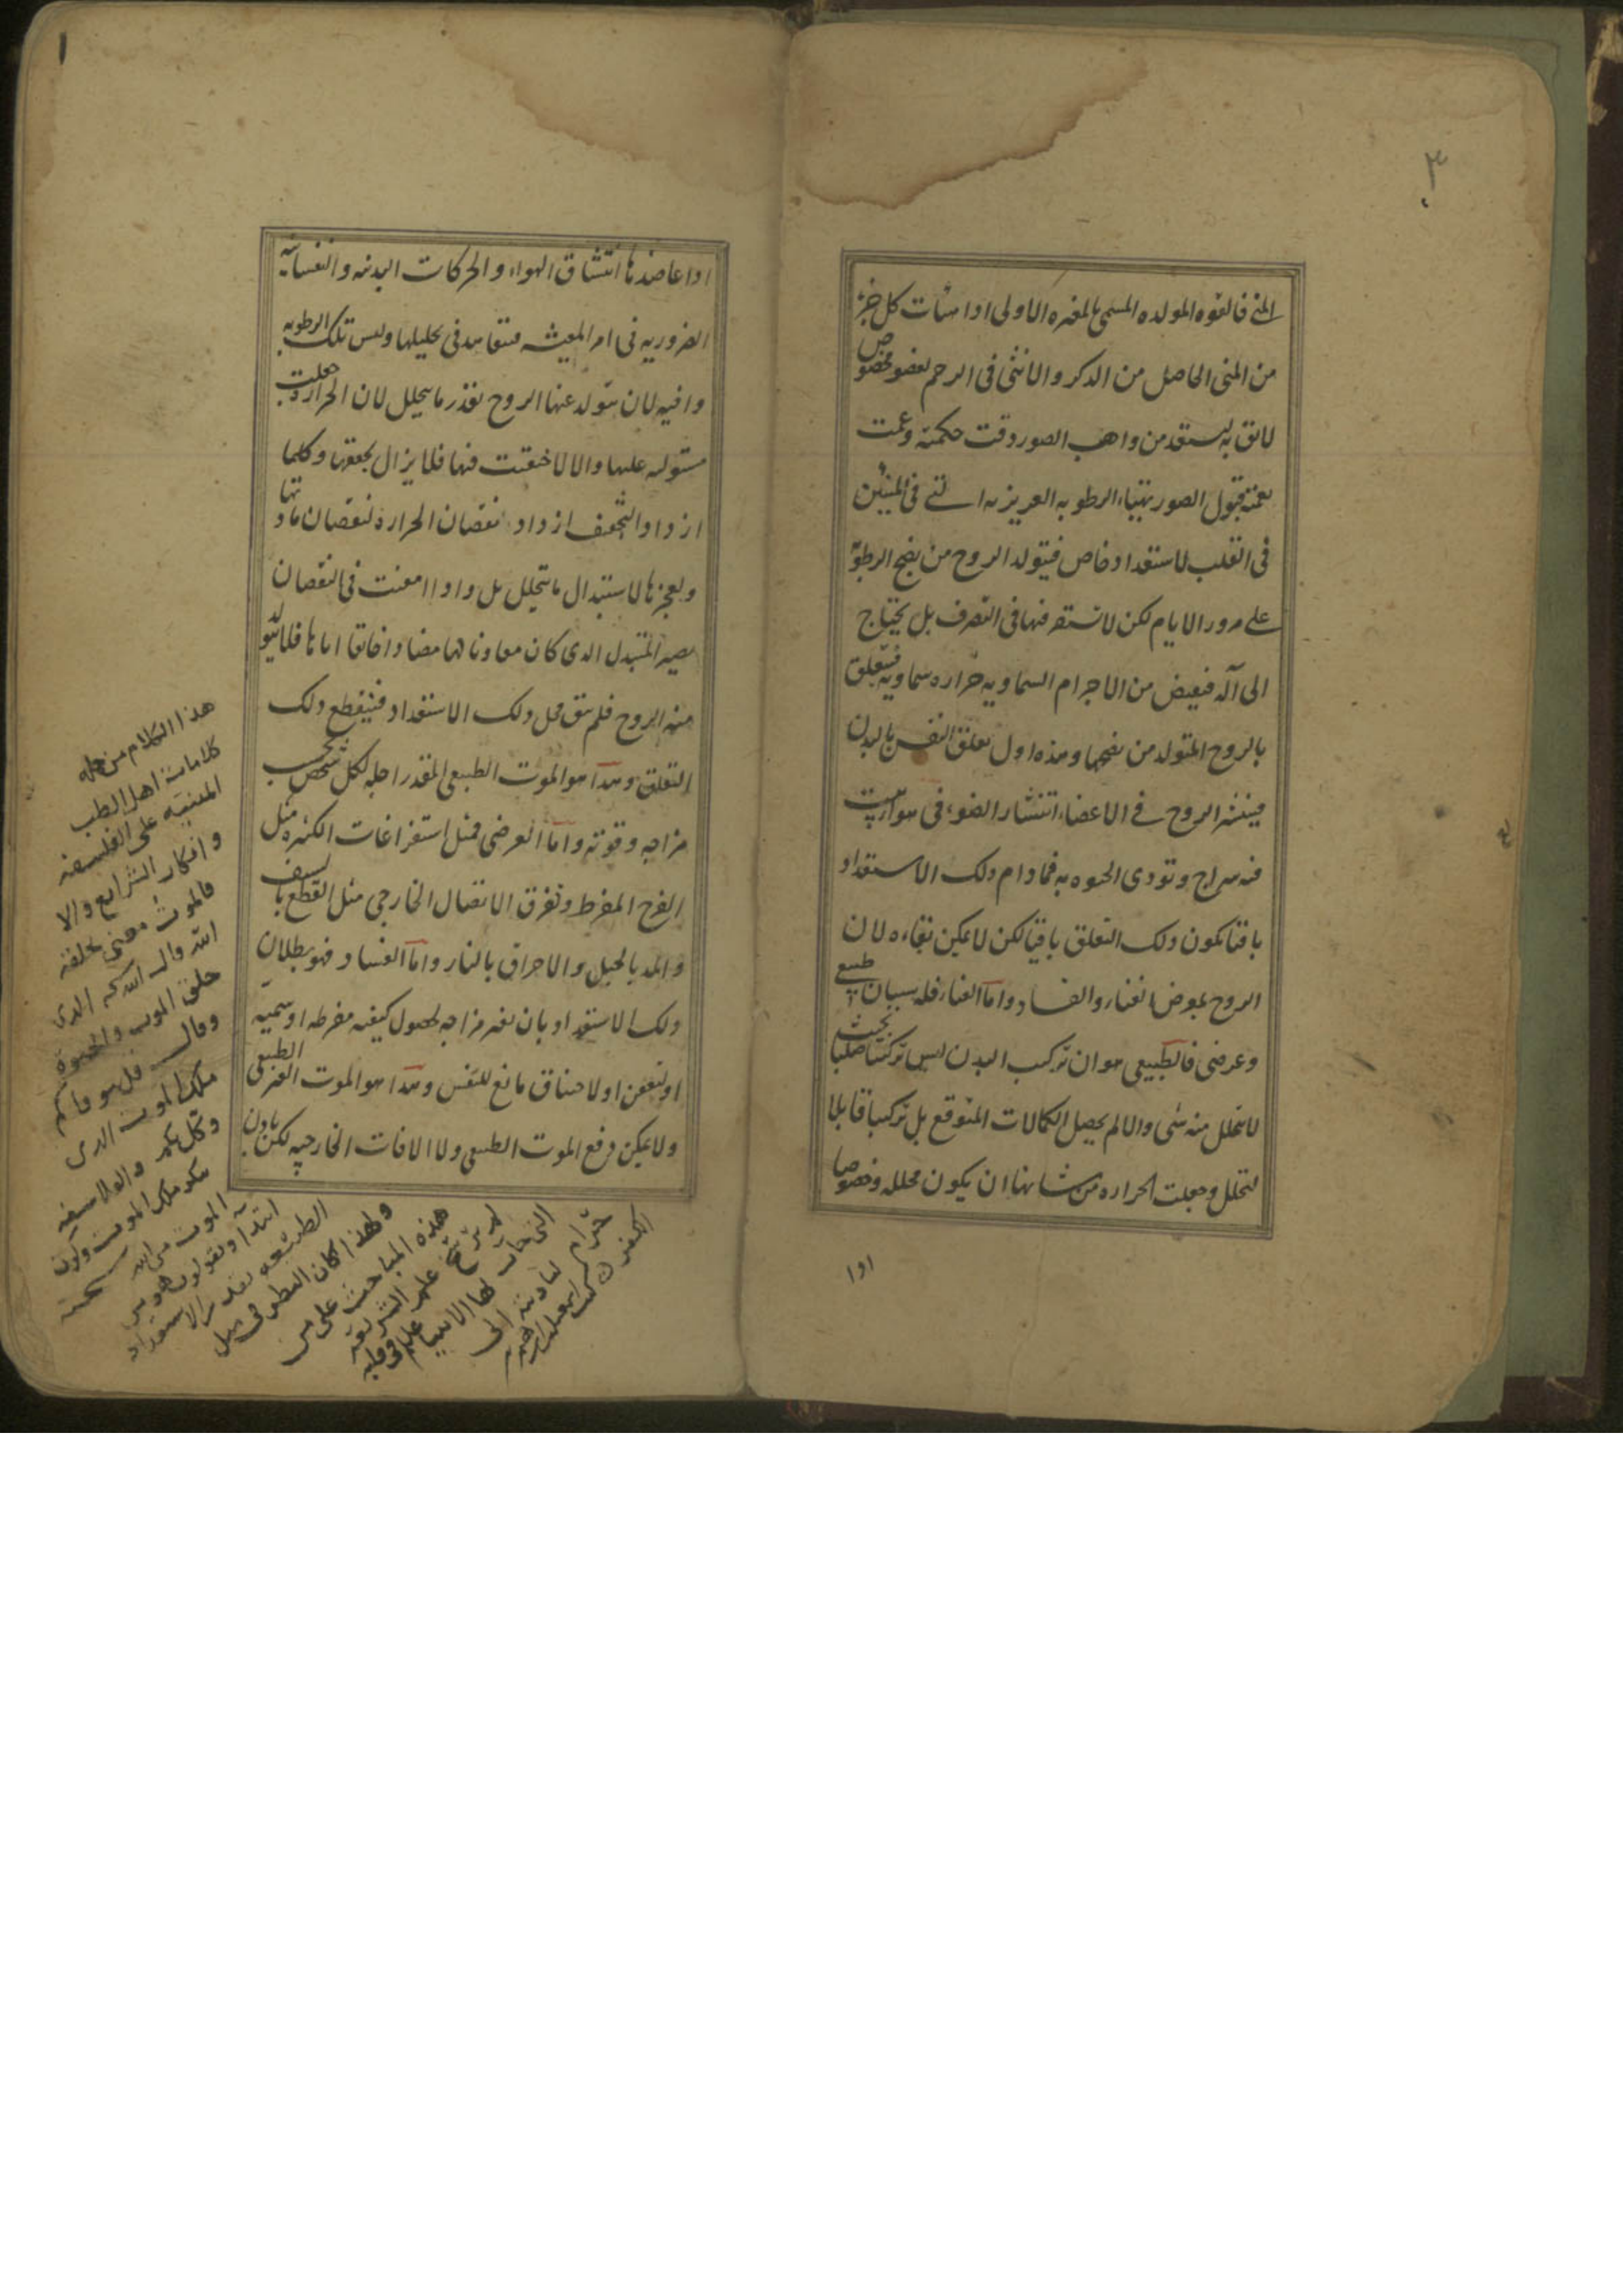 ٣
المنى فالقوه المولده المسمى بالمغيره الاولى اذا هيأت كل جزء
من المنى الحاصل من الذكر والانثى فى الرحم لعضو مخصوص
لايق به ليستعد من واهب الصور دقت حكمته وعمت
نعمته قبول الصور تتهياء الرطوبه الغريزيه التى فى المنيين
فى القلب لاستعداد خاص فيتولد الروح من نضج الرطوبة
على مرور الايام لكن لا تستقر فيها فى التصرف بل يحتاج
الى آله فيفيض من الاجرام السماويه حراره سماويه فيتعلق
بالروح المتولد من نضجها وهذه اول تعلق النفس بالبدن
فينتشر الروح فى الاعضاء انتشار الضوء فى هواء بيت
فيه سراج وتودى الحيوه به فما دام ذلك الاستعداد
باقيا يكون ذلك التعلق باقيا لكن لا يمكن بقاءه لان
الروح بمعرض الفناء والفساد واما الفناء فله سببان طبيعى
وعرضى فالطبيعى هو ان تركيب البدن ليس تركيبا صلبا بحيث
لا يتحلل منه شى والا لم يحصل الكمالات المتوقع بل تركيبا قابلا
لتحلل وجعلت الحراره من شانها ان يكون محلله وخصوصا
اذا
١
اذا عاضدها انتشاق الهواء والحركات البدنيه والنفسانيه
الضروريه فى امر المعيشه فتعاضد فى تحليلها وليس تلك الرطوبه
وافيه لان يتولد عنها الروح بقدر ما يتحلل لان الحرارة جعلت
مستوليه عليها والا لاختنقت فيها فلا يزال يجففها وكلما
ازداد التجفف ازداد نقصان الحراره لنقصان مادتها
ولعجزها لاستبدال ما يتحلل بل واذا امعنت فى النقصان
يصير المتبدل الذى كان معاونا لها مضادا خانقا اياها فلا يتولد
منه الروح فلم يبق محل ذلك الاستعداد فينقطع ذلك
التعلق وهذا هو الموت الطبيعى المقدر اجله لكل شخص بحسب
مزاجه وقوته واما العرضى فمثل استفراغات الكثيره مثل
الفرح المفرط وتفرق الاتصال الخارجى مثل القطع بالسيف
والمد بالحبل والاحراق بالنار واما الفساد فهو بطلان
ذلك الاستعداد بان يغير مزاجه لحصول كيفيه مفرطه او سميه
او تعفن او لاختناق مانع للتنفس وهذا هو الموت الغير الطبيعى
ولا يمكن دفع الموت الطبيعى ولا الافات الخارجيه لكن باذن
هذا الكلام من جمله
كلامات اهل الطب
المبنيه على الفلسفه
وانكار الشرايع والا
فالموت معنى يخلقه
الله قال الله سبحه الذى
خلق الموت والحيوة
وقال قل يتوفاكم
ملك الموت الذى
وكل بكم والفلاسفه
ينكر ملك الموت وكون
الموت من الله سبحنه
ابتدآ ويقولون هو من
الطبيعه بقدر الاستعداد
ولهذا كان النظر فى مثل
هذه المباحث على من
لم يرسخ علم الشريعة
التى جآت بها الانبيا عليهم فى قلبه
حرام لتاديته الى
الكفر